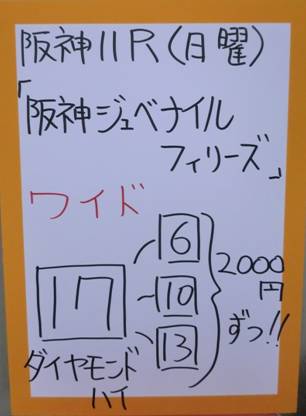 阪神11R(日曜)
「阪神ジュベナイル
フィリーズ」
ワイド
17
ダイヤモンド
ハイ
6
10
13
2000
円
ずつ!!